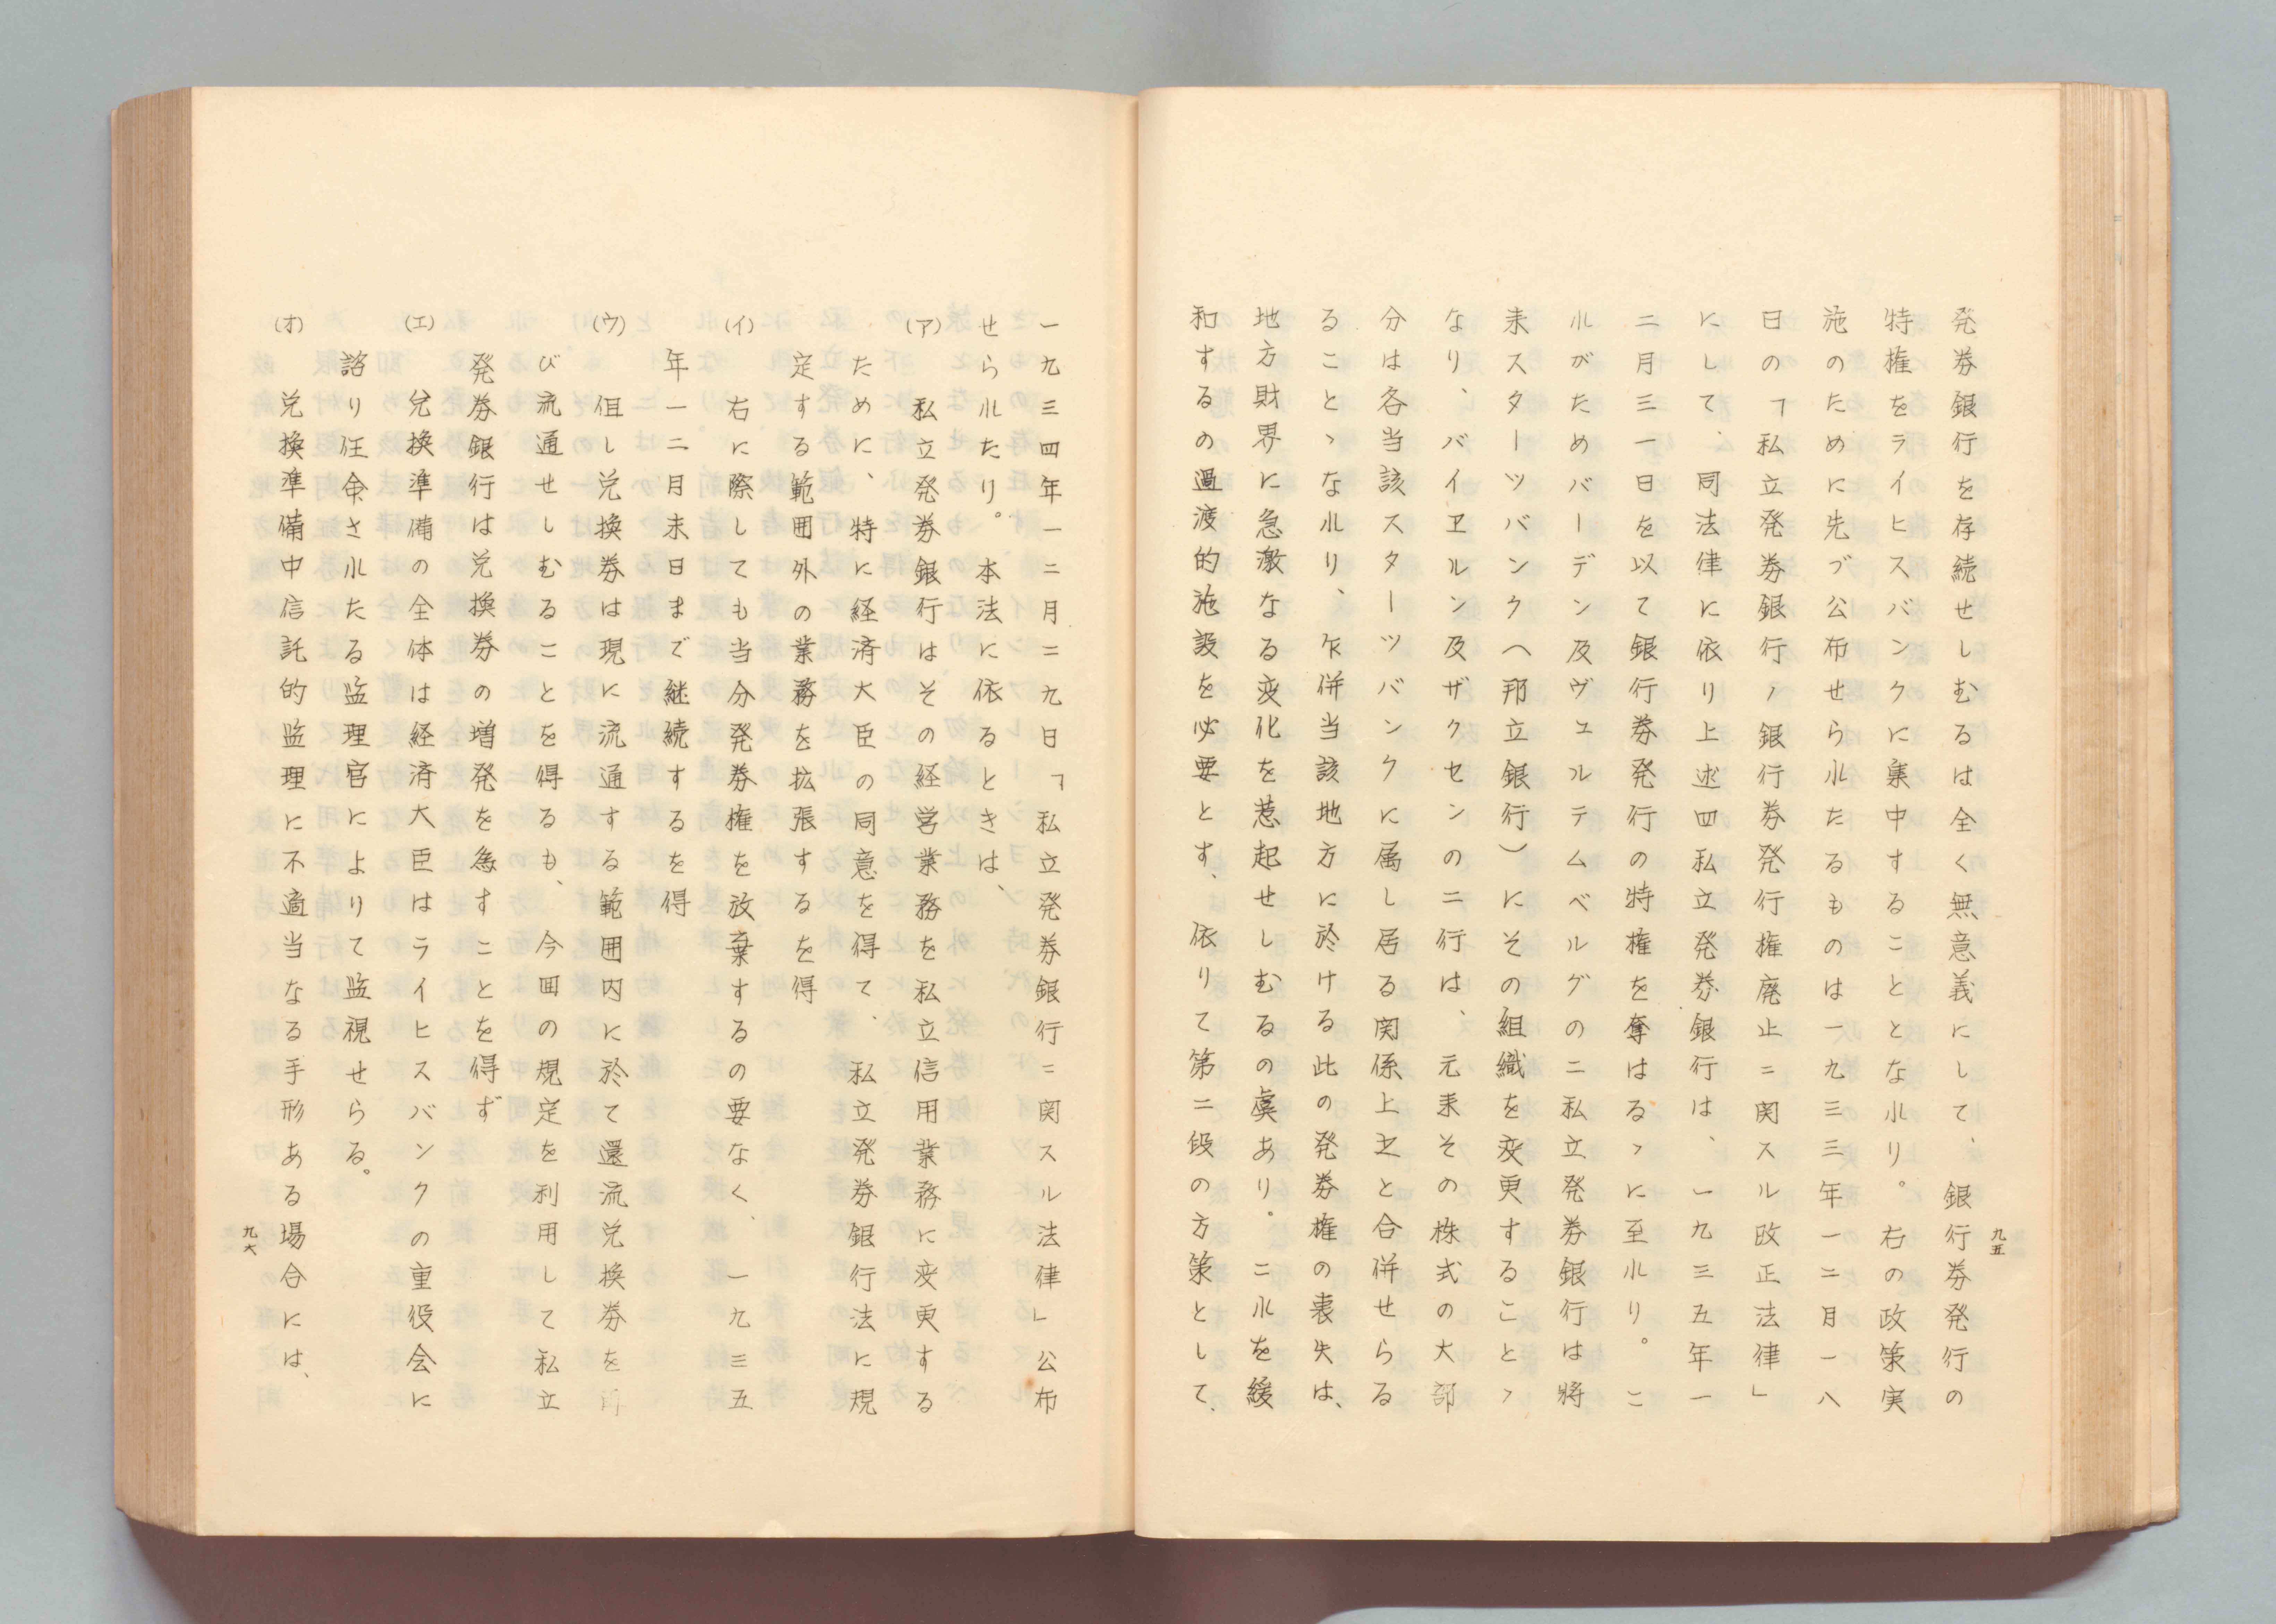 発券銀行を存続せしむるは全く無意義にして、銀行券発行の
特権をライヒスバンクに集中することとなれり。右の政策実
施のために先づ公布せられたるものは一九三三年一二月一八
日の「私立発券銀行ノ銀行券発行権廃止ニ関スル改正法律」
にして、同法律に依り上述四私立発券銀行は、一九三五年一
二月三一日を以て銀行券発行の特権を奪はるゝに至れり。こ
れがためバーデン及ヴュルテムベルグの二私立発券銀行は将
来スターツバンク(邦立銀行)にその組織を変更することゝ
なり、バイエルン及ザクセンの二行は、元来その株式の大部
分は各当該スターツバンクに属し居る関係上之と合併せらる
ることゝなれり、乍併当該地方に於ける此の発券権の喪失は、
地方財界に急激なる変化を惹起せしむるの虞あり。これを緩
和するの過渡的施設を必要とす、依りて第二段の方策として、
九五
一九三四年一二月二九日「私立発券銀行ニ関スル法律」公布
せられたり。本法に依るときは、
(ア) 私立発券銀行はその経営業務を私立信用業務に変更する
ために、特に経済大臣の同意を得て、私立発券銀行法に規
定する範囲外の業務を拡張するを得
(イ) 右に際しても当分発券権を放棄するの要なく、一九三五
年一二月末日まで継続するを得
(ウ) 但し兌換券は現に流通する範囲内に於て還流兌換券を再
び流通せしむることを得るも、今回の規定を利用して私立
発券銀行は兌換券の増発を為すことを得ず
(エ) 兌換準備の全体は経済大臣はライヒスバンクの重役会に
諮り任命されたる監理官によりて監視せらる。
(オ) 兌換準備中信託的監理に不適当なる手形ある場合には、
九六